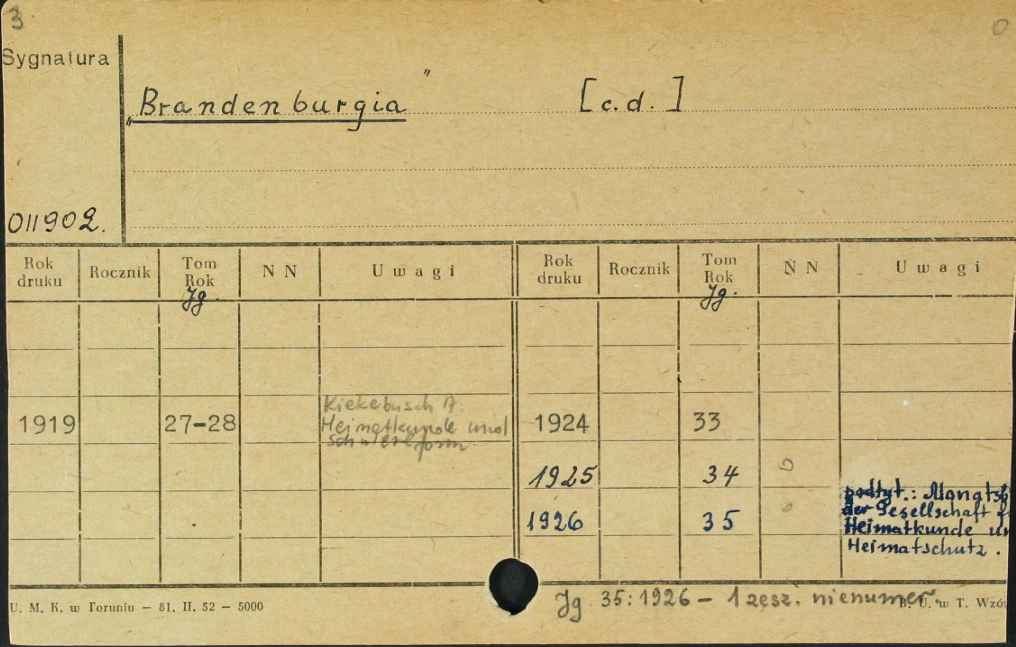 3
0
Sygnatura
„Brandenburgia” [c.d.]
011902.
Rok druku Rocznik Tom Rok Jg. N N Uwagi Rok druku Rocznik Tom Rok Jg. N N Uwagi
Kiekebusch A.
1919 27-28 Heimatkunde und 1924 33
1925 34
podtyt.: Monatsb
der Gesellschaft f
1926 35 Heimatkunde un
Heimatschutz.
U. M. K. w Toruniu — 81. II. 52 — 5000
Jg. 35:1926 – 1 zesz. nienumer.
B. U. w T. Wzó